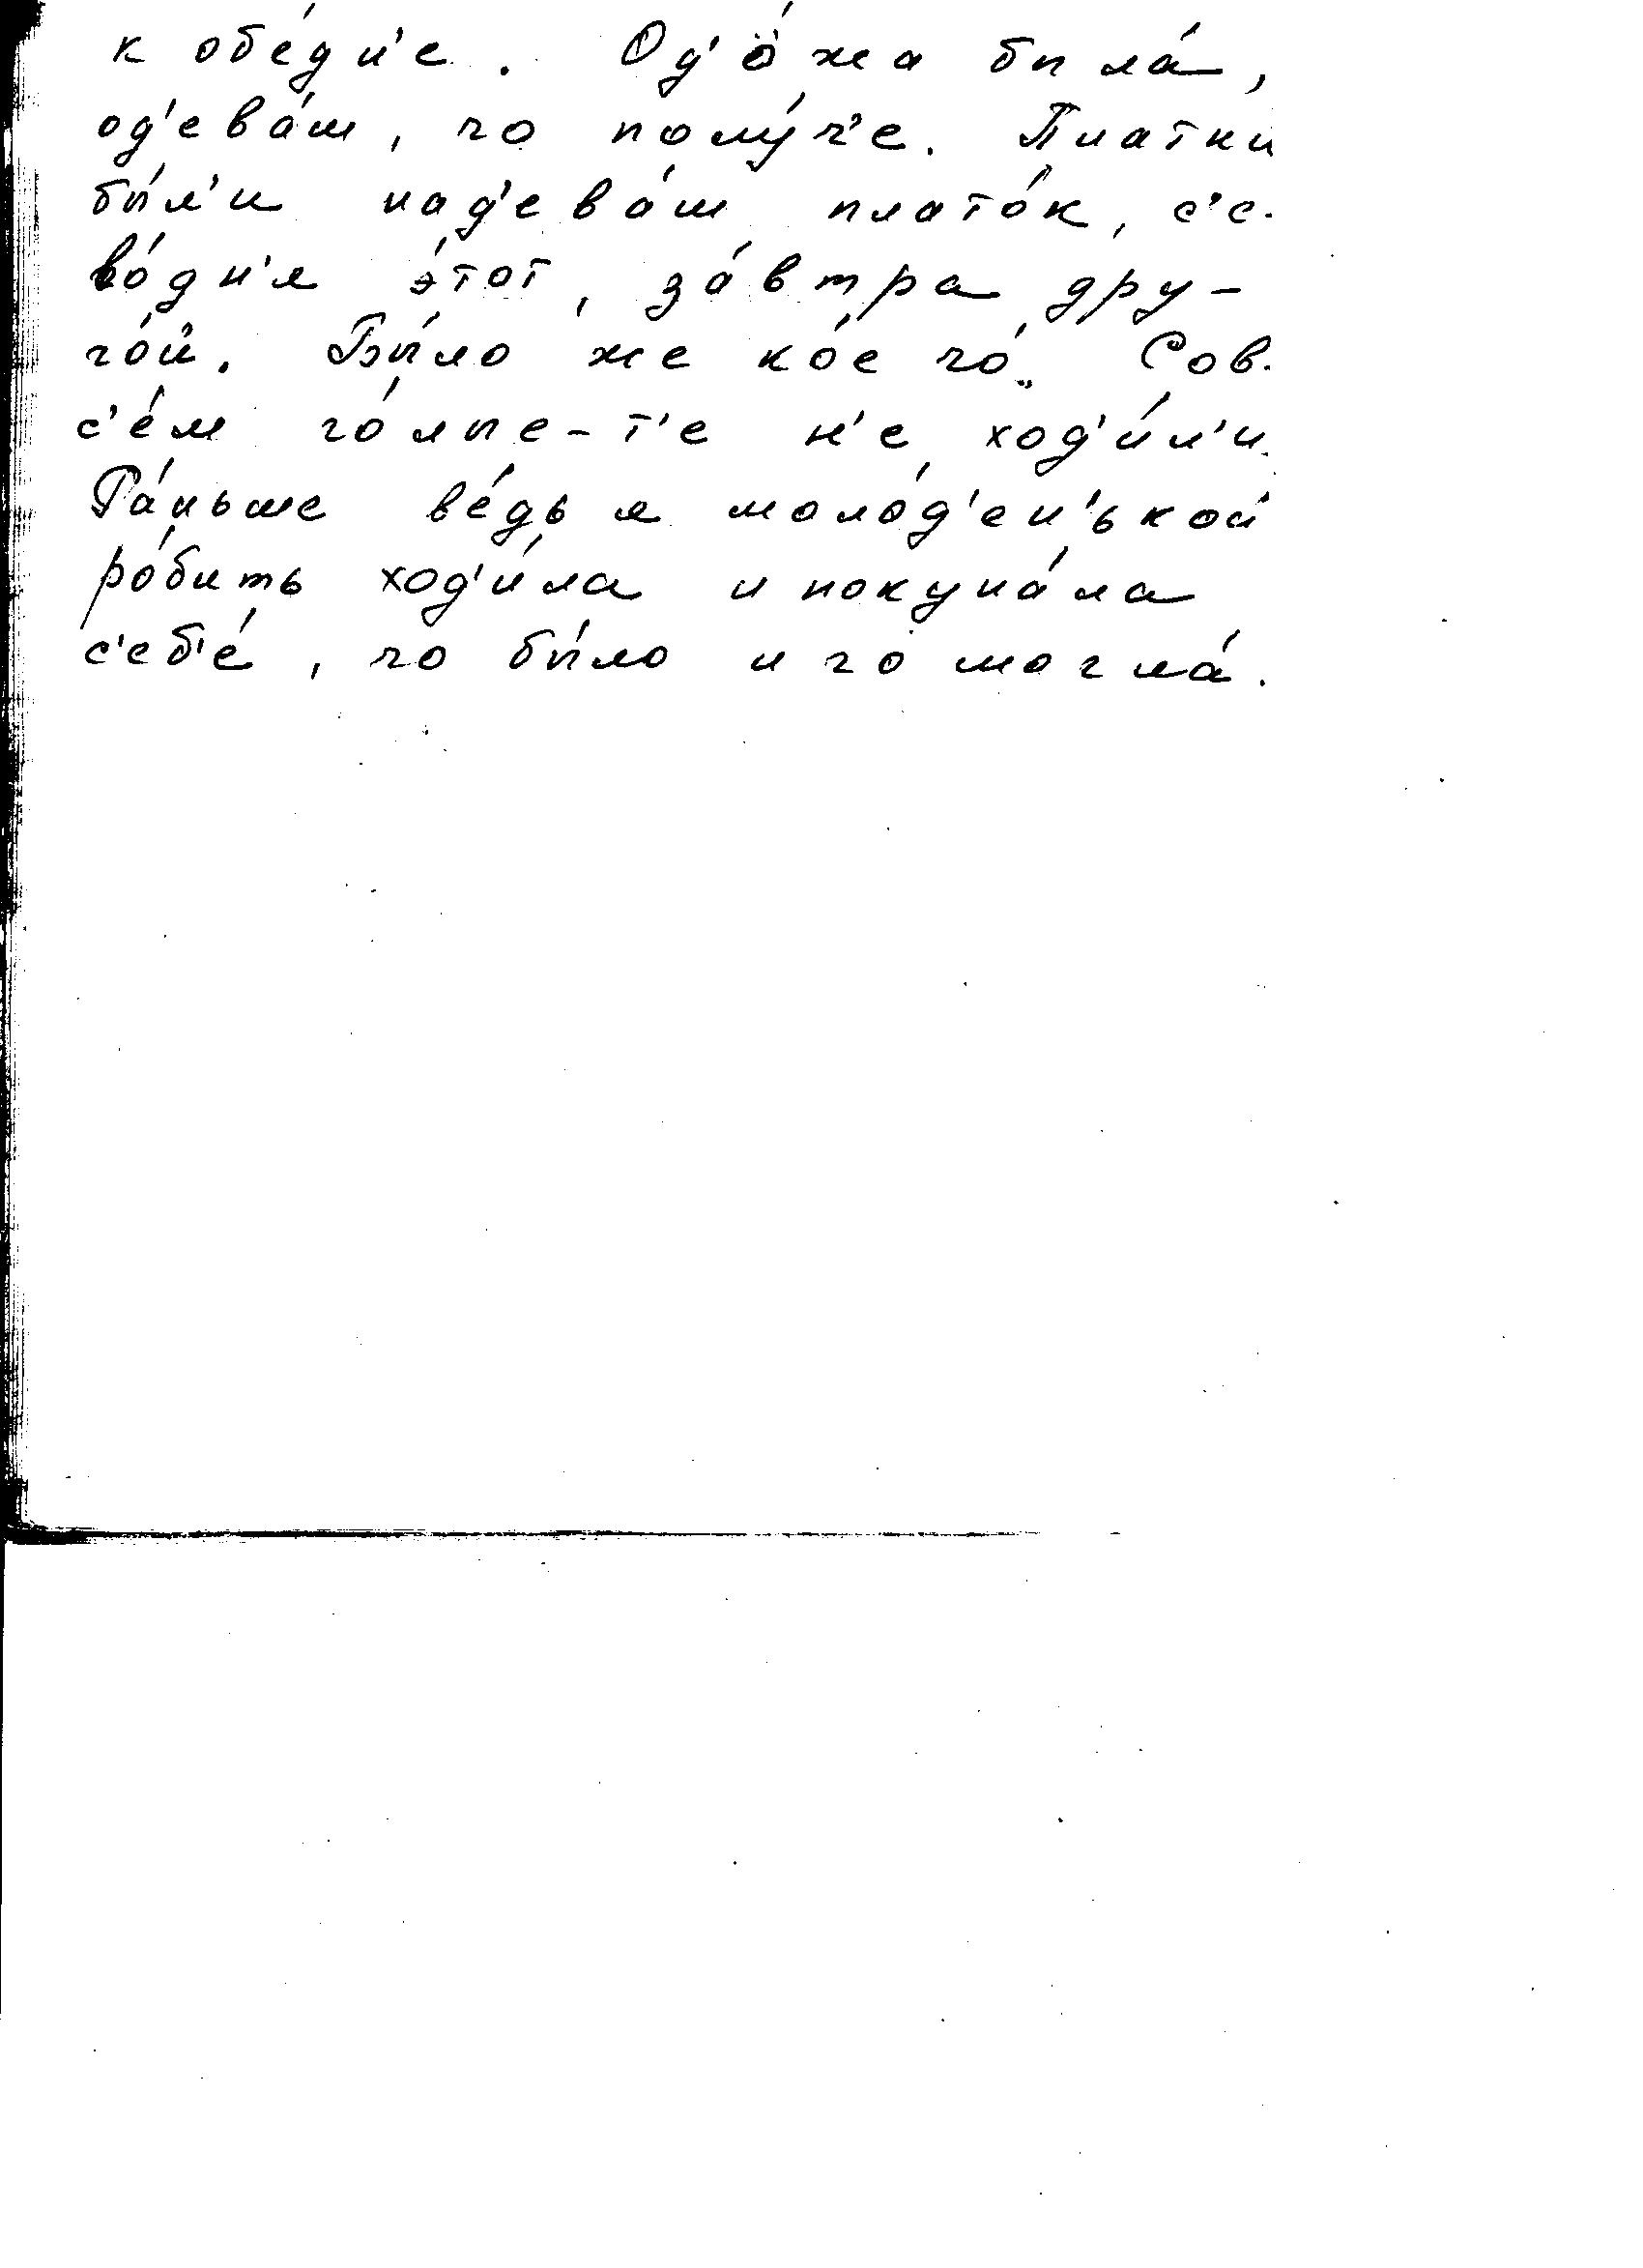 к обе́дн'е. Од'о́жа была́,
од'ева́ш, чо полу́ч'е. Платки
бы́л'и над'ева́ш плато́к, с'е-
во́дн'я э́тот, за́втра дру-
го́й. Бы́ло же ко́е чо́. Сов-
с'е́м го́лые-т'е н'е ход'и́л'и.
Ра́ньше ве́дь я моло́д'ен'ькой
ро́бить ход'и́ла и покупа́ла
с'еб'е́, чо бы́ло и чо могла́.